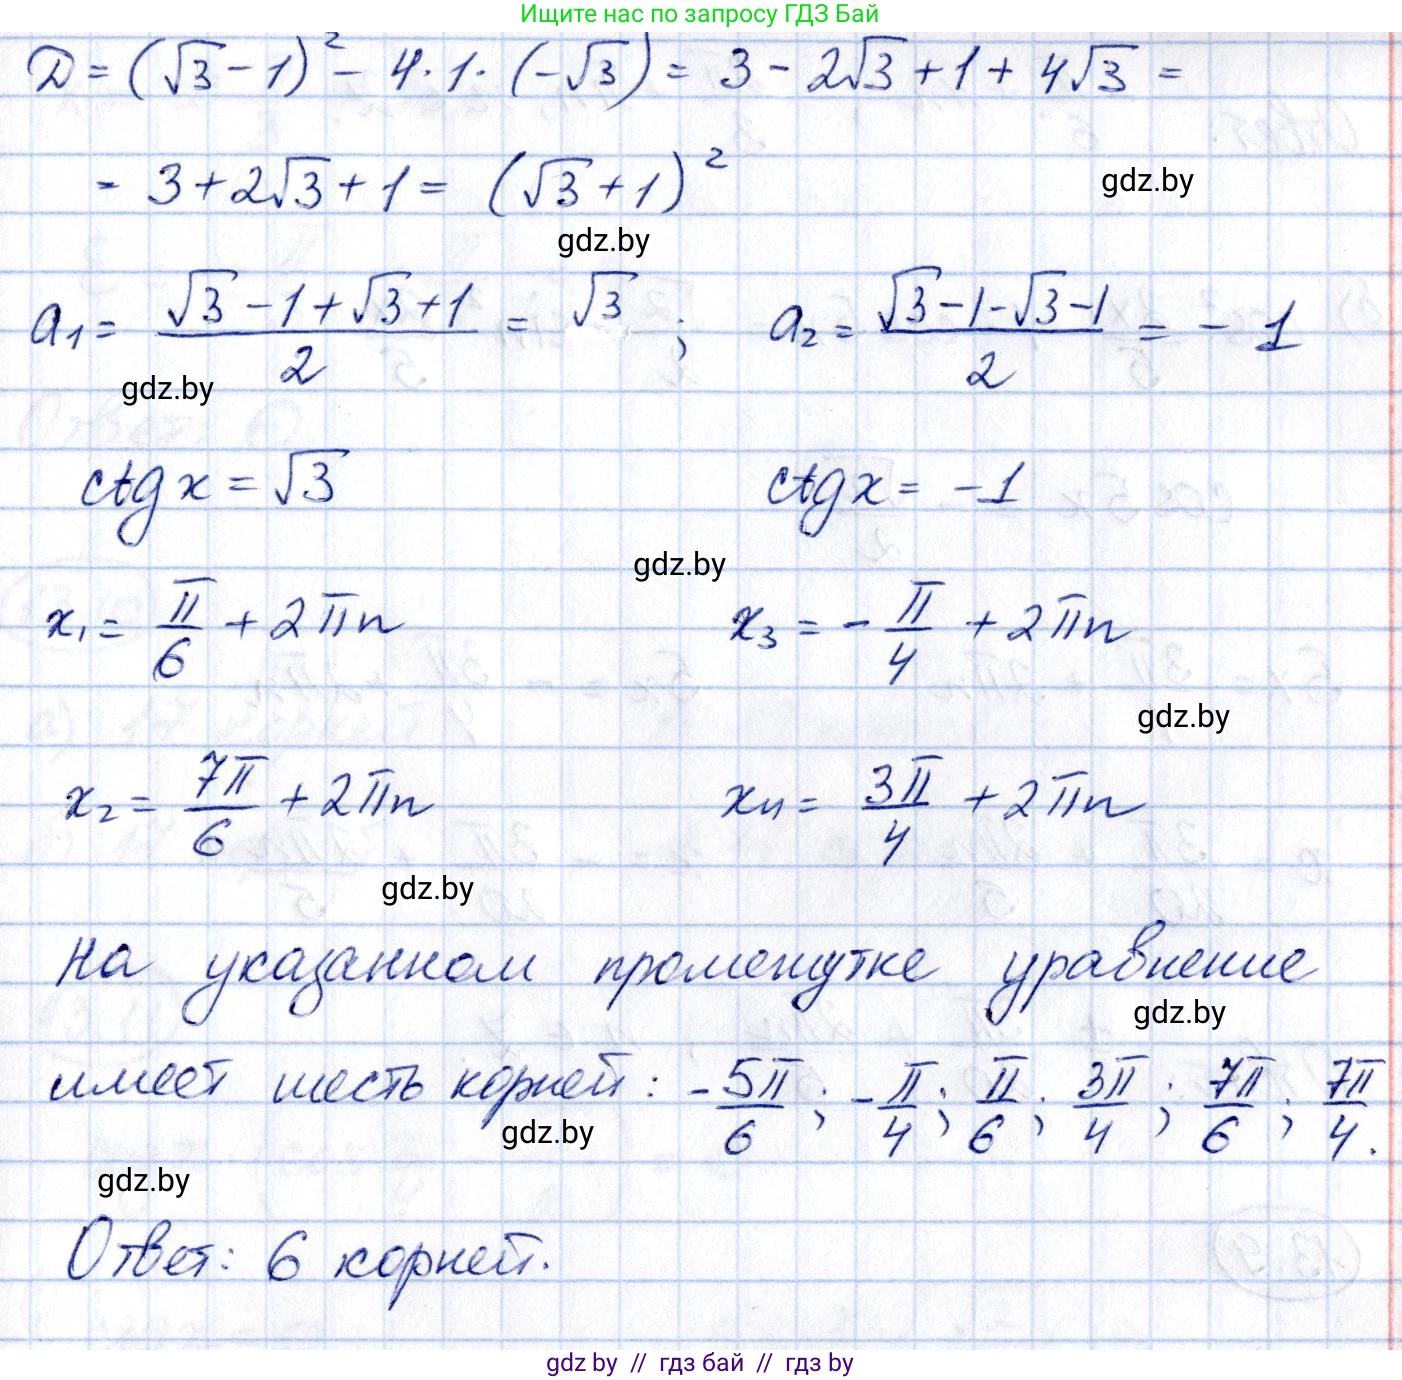 Ищите нас по запросу ГДЗ Бай
D = (√3 - 1)² - 4·1·(-√3) = 3 - 2√3 + 1 + 4√3 =
= 3 + 2√3 + 1 = (√3 + 1)²
gdz.by
gdz.by
a₁ = (√3 - 1 + √3 + 1)/2 = √3 ; a₂ = (√3 - 1 - √3 - 1)/2 = - 1
gdz.by
ctg x = √3 ctg x = -1
gdz.by
x₁ = π/6 + 2πn x₃ = - π/4 + 2πn
gdz.by
x₂ = 7π/6 + 2πn x₄ = 3π/4 + 2πn
gdz.by
На указанном промежутке уравнение
gdz.by
имеет шесть корней: - 5π/6 ; - π/4 ; π/6 ; 3π/4 ; 7π/6 ; 7π/4 .
gdz.by
gdz.by
Ответ: 6 корней.
gdz.by // гдз бай // гдз by